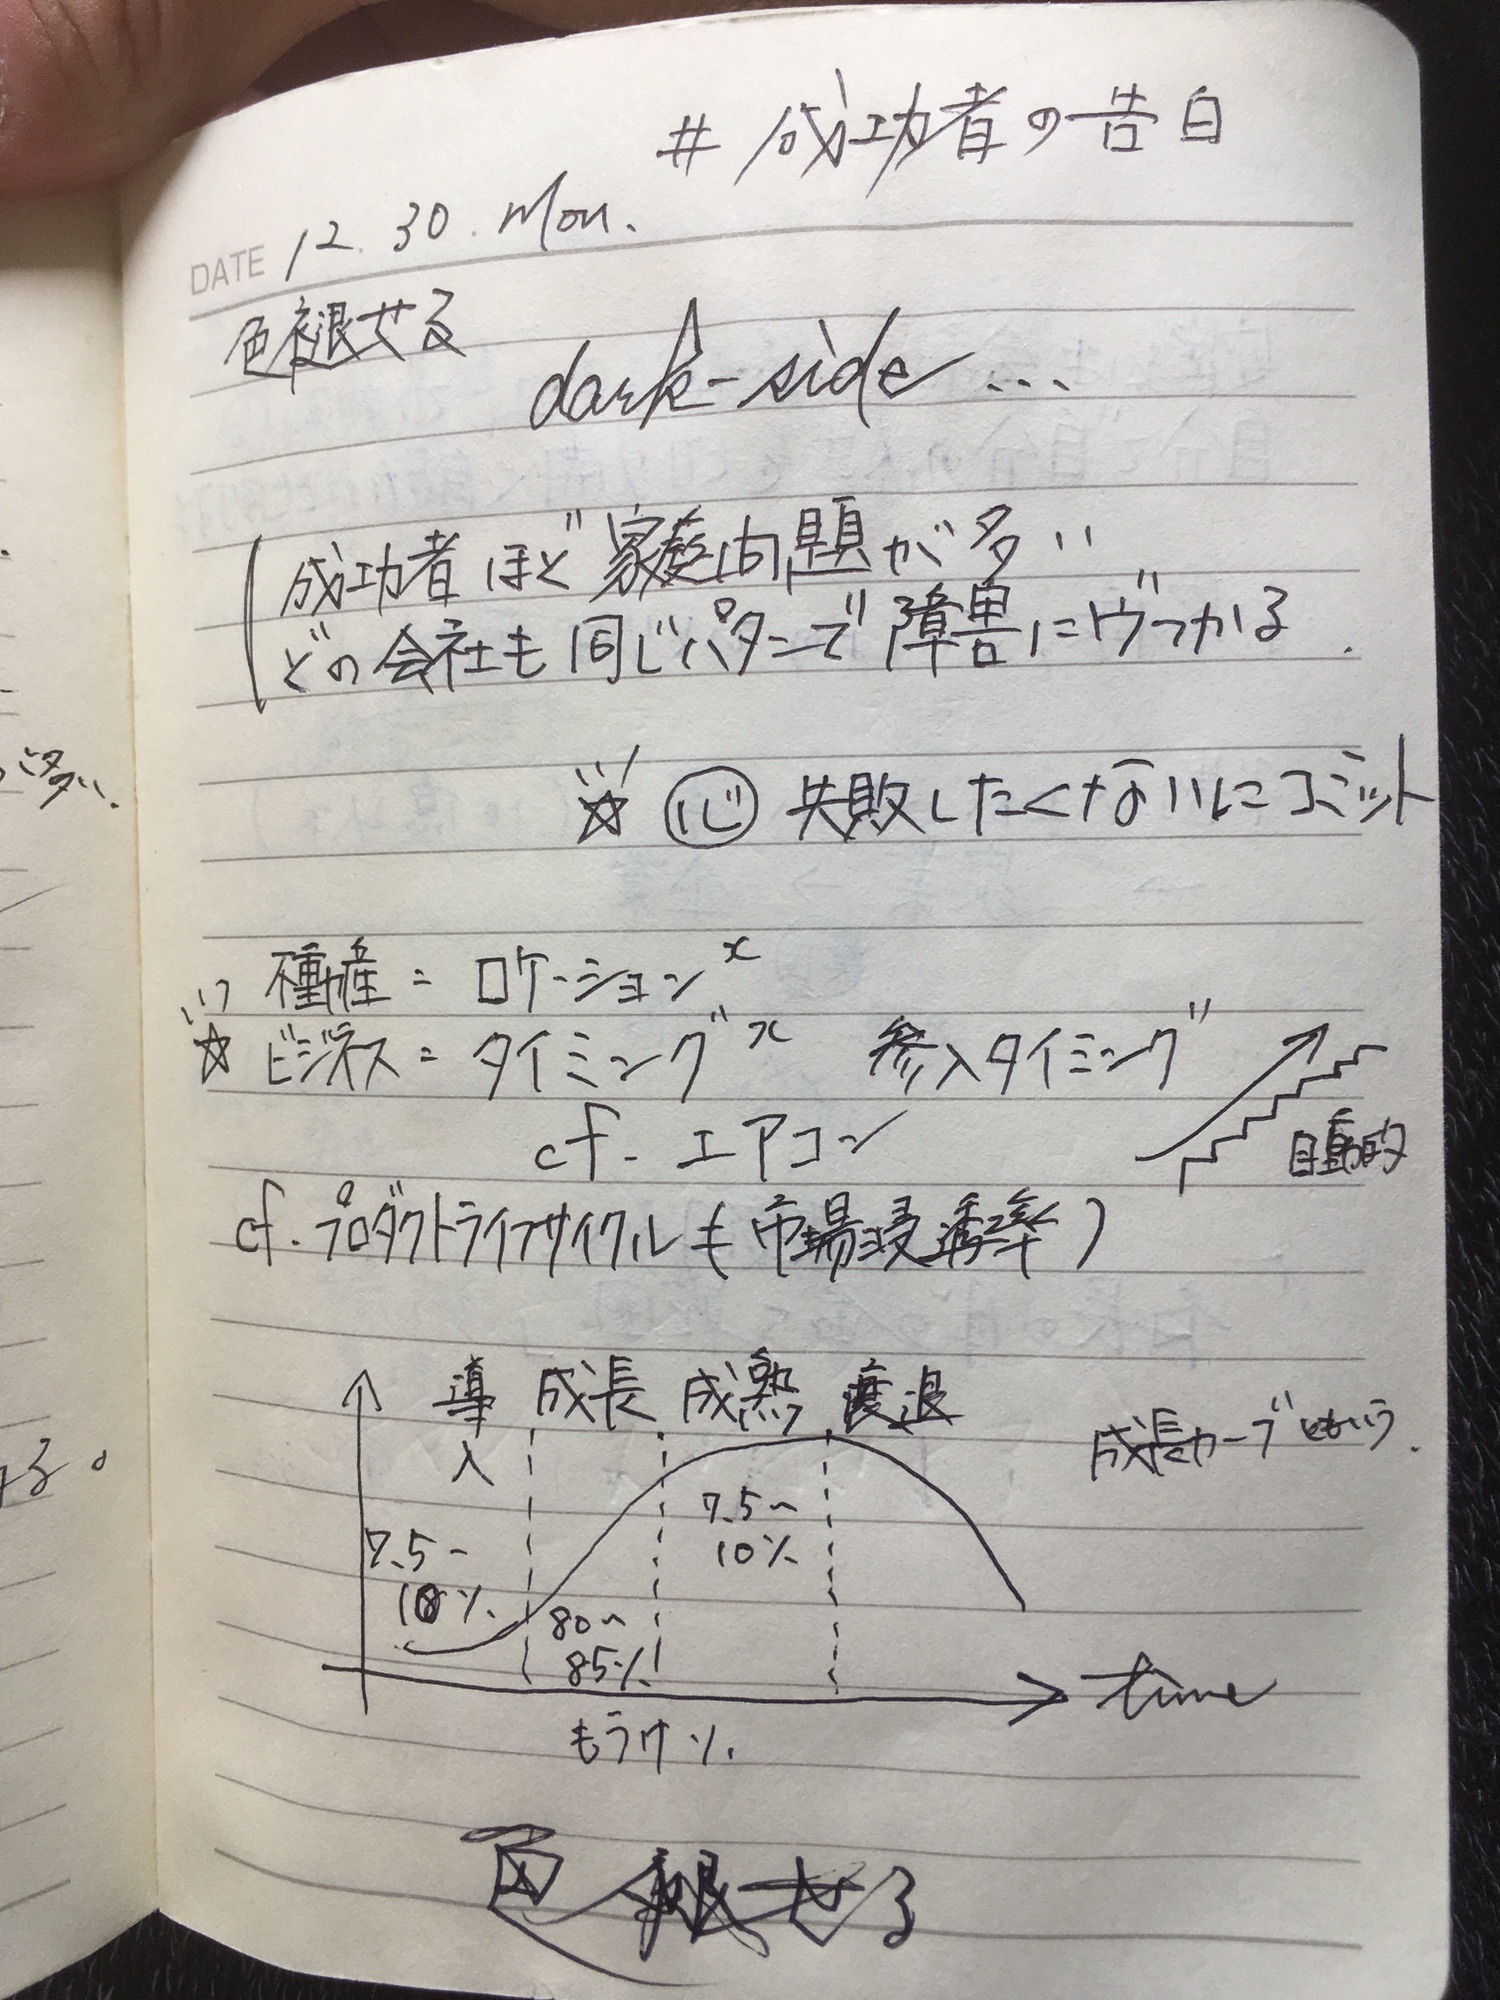 # 成功者の告白
DATE 12. 30. Mon.
色褪せる
dark-side ...
成功者ほど家庭問題が多い
どの会社も同じパタンで障害にヅつかる.
☆ 心 失敗したくないにコミット
不動産 = ロケーション x
☆ ビジネス = タイミング x 参入タイミング
cf. エアコン
自動的
cf. プロダクトライフサイクルも市場浸透率)
導入 成長 成熟 衰退
成長カーブともいう.
7.5~
10%
7.5~
10%
80~
85%
time
もうけ %.
色褪せる
多い.
る。